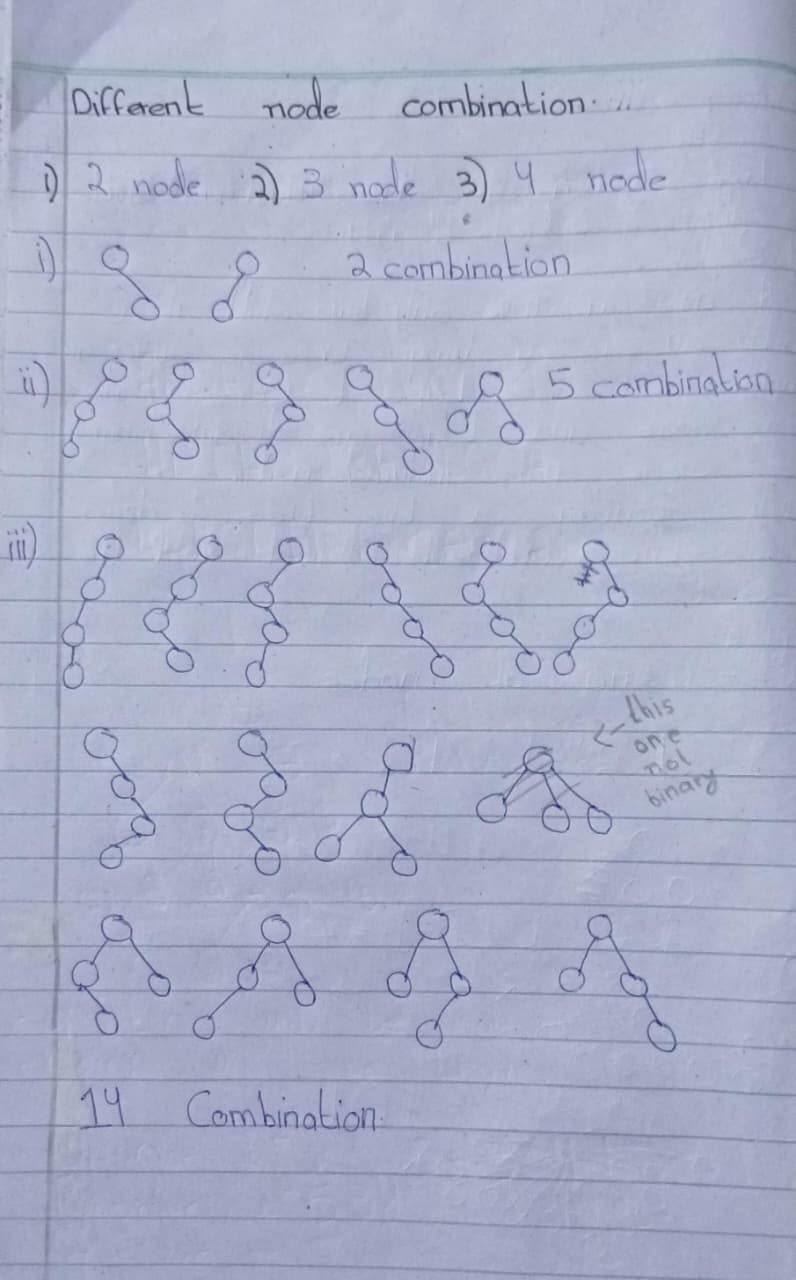 Different node combination...
1) 2 node 2) 3 node 3) 4 node
i) 2 combination
ii) 5 combination
iii)
<- this
one
not
binary
14 Combination.